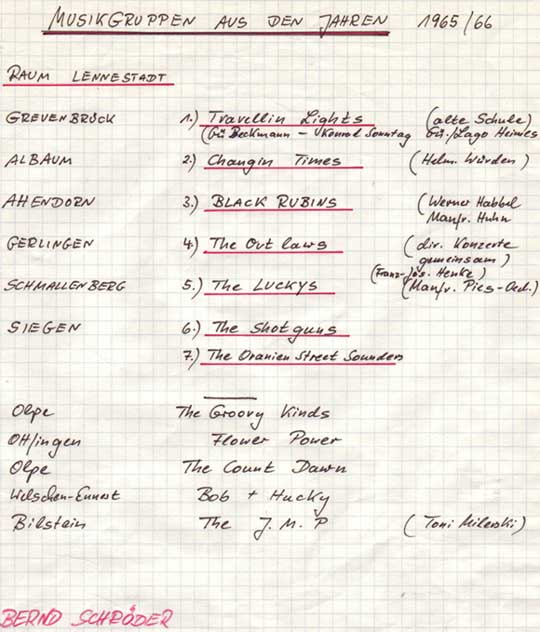 MUSIKGRUPPEN AUS DEN JAHREN 1965/66
RAUM LENNESTADT
GREVENBRÜCK 1.) Travellin Lights (alte Schule)
(Gü Beckmann - Konrad Sonntag Gü./Lago Heimes
ALBAUM 2.) Changin Times (Helm. Würden)
AHENDORN 3.) BLACK RUBINS (Werner Habbel
Manfr. Huhn
GERLINGEN 4.) The Out laws (div. Konzerte
gemeinsam)
(Franz-Jos. Henke)
SCHMALLENBERG 5.) The LUCKYS (Manfr. Pies-Oed.)
SIEGEN 6.) The Shotguns
7.) The Oranien Street Sounders
Olpe The Groovy Kinds
Ottfingen Flower Power
Olpe The Count Dawn
Welschen-Ennest Bob + Hucky
Bilstein The J.M.P (Toni Milewski)
BERND SCHRÖDER